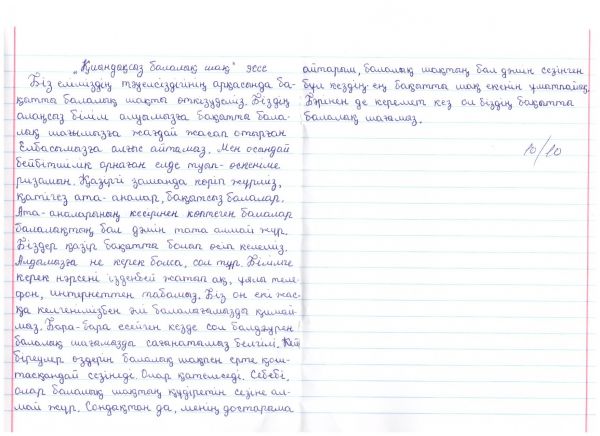 „Қиындықсыз балалық шақ" эссе
Біз еліміздің тәуелсіздігінің арқасында ба-
қытты балалық шақты өткізудеміз. Біздің
алаңсыз білім алуымызға бақытты бала-
лық шағымызға жағдай жасап отырған
Елбасымызға алғыс айтамыз. Мен осындай
бейбітшілік орнаған елде туып-өскеніме
ризамын. Қазіргі заманда көріп жүрміз,
қатігез ата-аналар, бақытсыз балалар.
Ата-аналарының кесірінен көптеген балалар
балалықтың бал дәмін тата алмай жүр.
Біздер қазір бақытты болып өсіп келеміз.
Алдымызға не керек болса, сол тұр. Білімге
керек нәрсені ізденбей жатып ақ, ұялы теле-
фон, интернеттен табамыз. Біз он екі жас-
қа келгенімізбен әлі балалығымызды қимай-
мыз. Бара-бара есейген кезде сол балдәурен
балалық шағымызды сағынатамыз белгілі. Кей
біреулер өздерін балалық шақпен ерте қош-
тасқандай сезінеді. Олар қателеседі. Себебі,
олар балалық шақтың құдіретін сезіне ал-
май жүр. Сондықтан да, менің достарыма
айтарым, балалық шақтың бал дәмін сезінген
бұл кездің ең бақытты шақ екенін ұмытпайық.
Бәрінен де керемет кез ол біздің бақытты
балалық шағымыз.
10/10